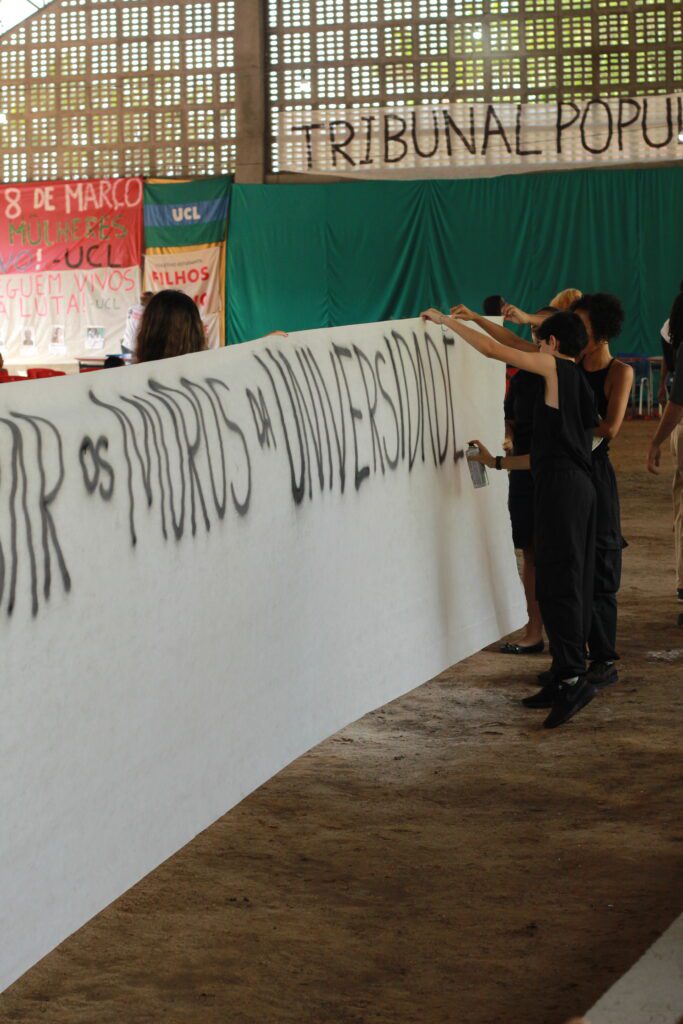 TRIBUNAL POPU
8 DE MARÇO
MULHERES
VO! - UCL
EGUEM VIVOS
A LUTA! UCL
UCL
FILHOS
AR OS MUROS DA UNIVERSIDADE